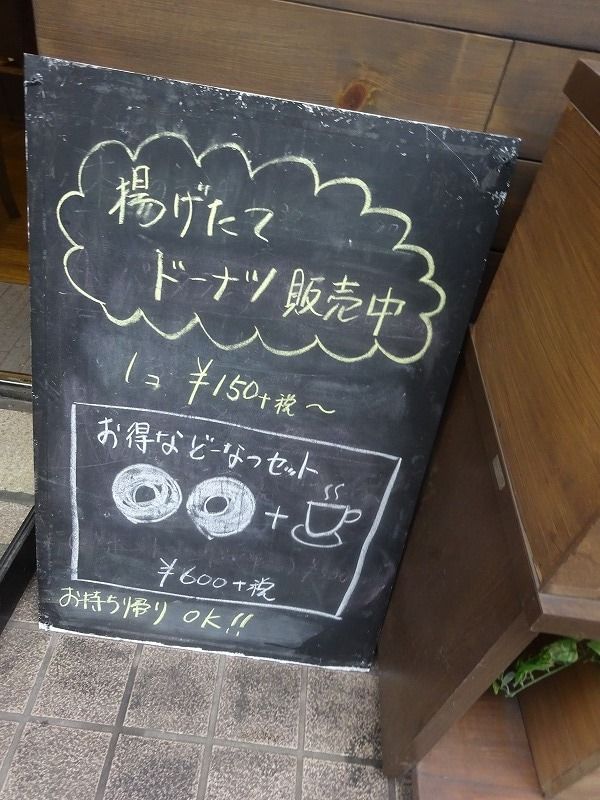 揚げたて
ドーナツ 販売中
1コ ¥150+税～
お得などーなつセット
+
¥600+税
お持ち帰り OK!!